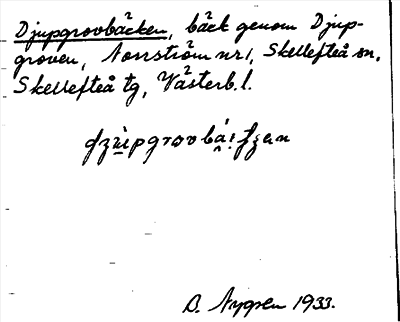 Djupgrovbäcken, bäck genom Djup-
groven, Norrström nr 1, Skellefteå sn,
Skellefteå tg, Västerb. l.
B. Nygren 1933.